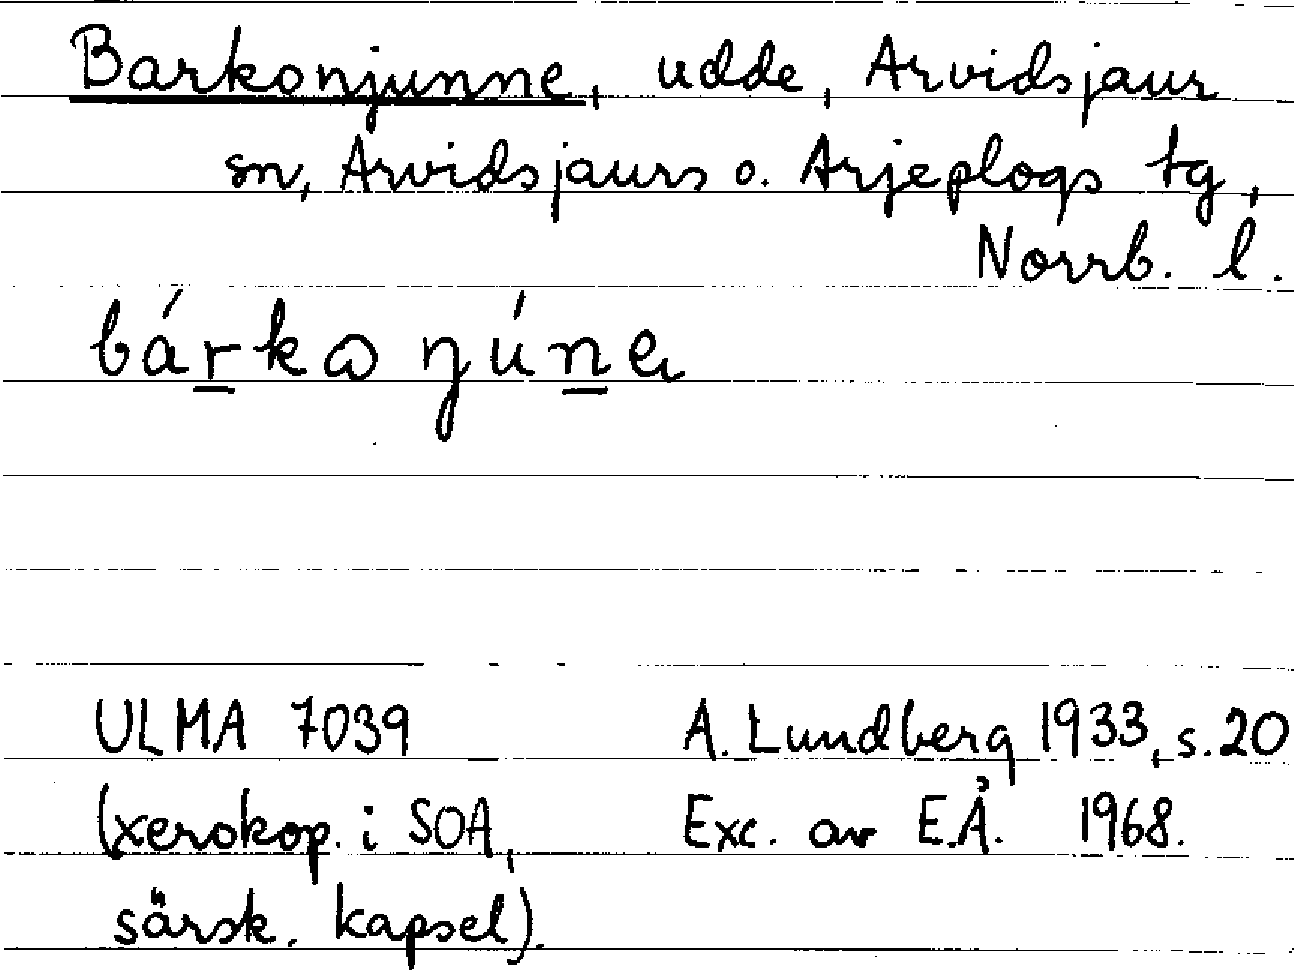 Barkonjunne, udde, Arvidsjaur
sn, Arvidsjaurs o. Arjeplogs tg,
Norrb. l.
bárkɷ ŋúne
ULMA 7039 A. Lundberg 1933, s. 20
(xerokop. i SOA, Exc. av E.Å. 1968.
särsk. kapsel).